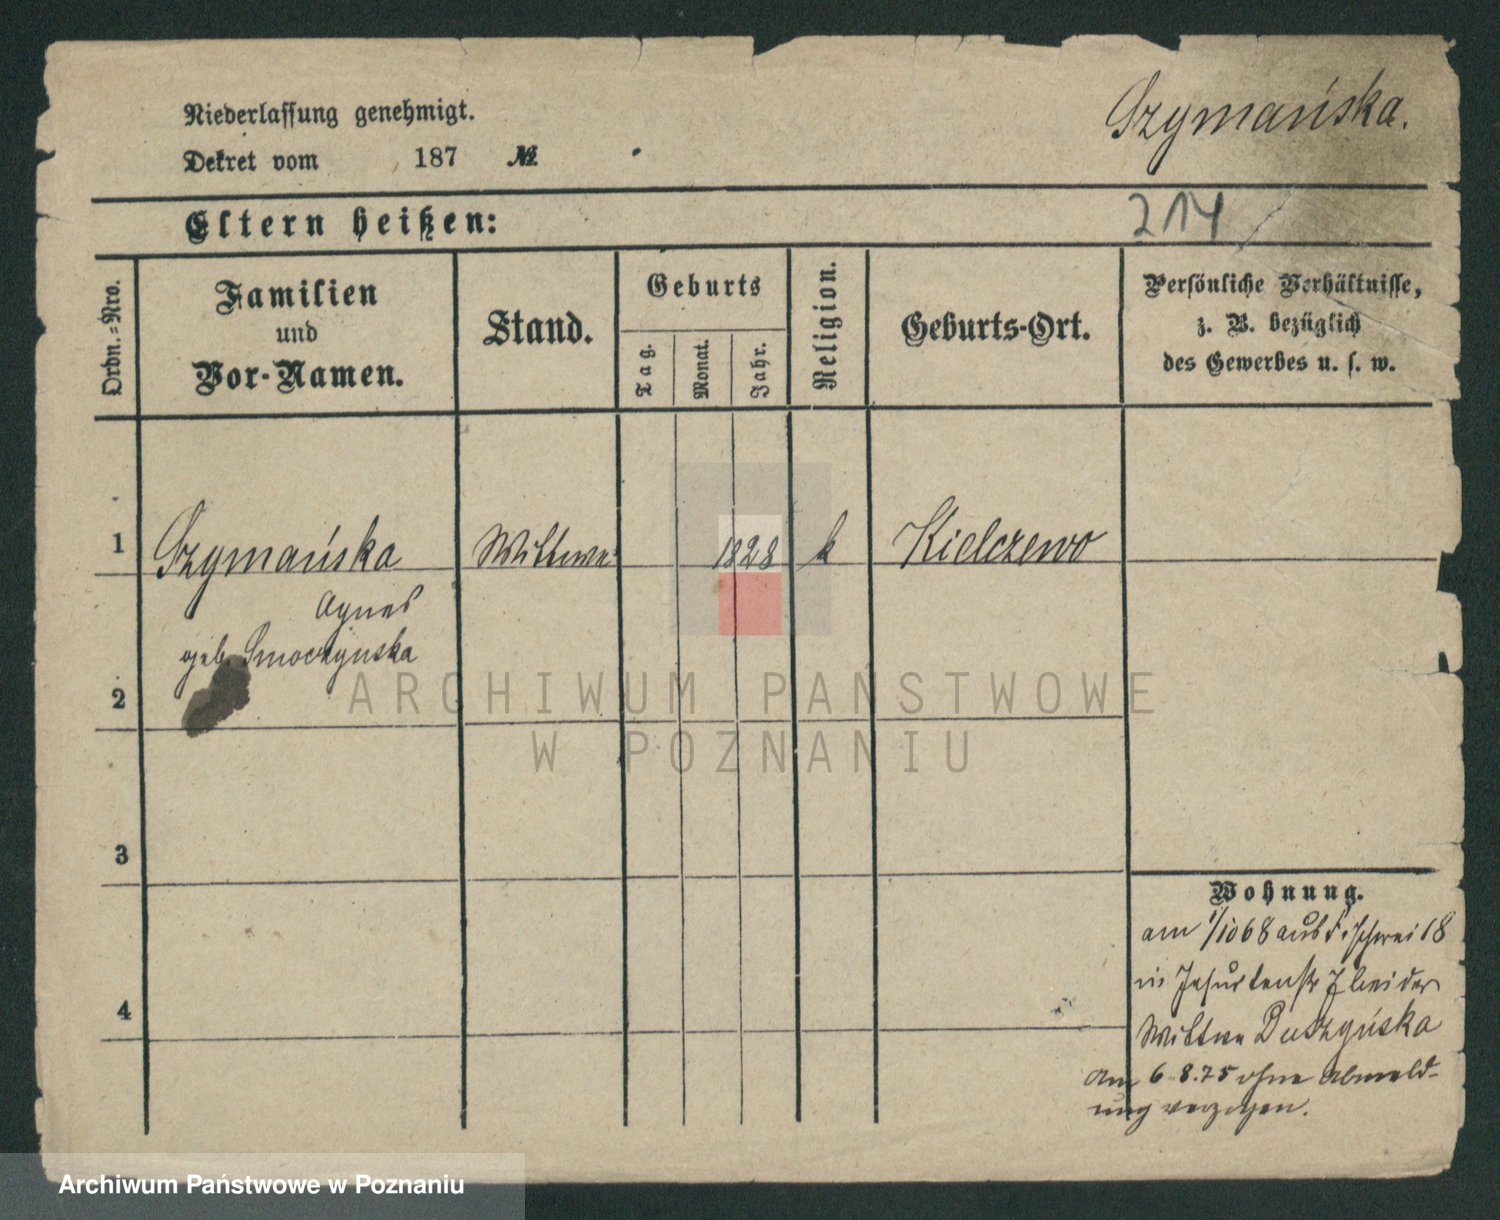 Niederlassung genehmigt.
Szymańska.
Dekret vom 187 №
Eltern heißen:
214
Ordn.=Nro.
Familien
und
Vor-Namen.
Stand.
Geburts
Tag.
Monat.
Jahr.
Religion.
Geburts-Ort.
Persönliche Verhältnisse,
z. B. bezüglich
des Gewerbes u. s. w.
1 Szymańska Wittwe 1828 k Kielczewo
Agnes
geb. Smoczynska
2
3
4
Wohnung.
am 1/10 68 aus Fischerei 18
in Jesuitenstr 7 bei der
Wittwe Duszyńska
Am 6.8.75 ohne Abmeld-
ung verzogen.
ARCHIWUM PAŃSTWOWE
W POZNANIU
Archiwum Państwowe w Poznaniu